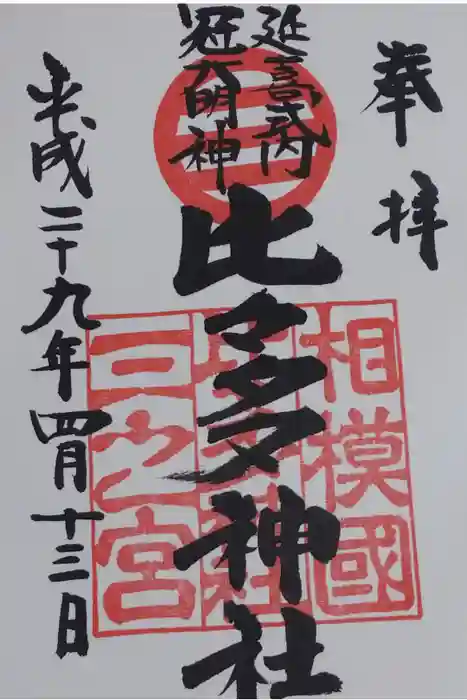 奉拝
延喜式内
冠大明神
三
比々多神社
相模國
三之宮
平成二十九年四月十三日